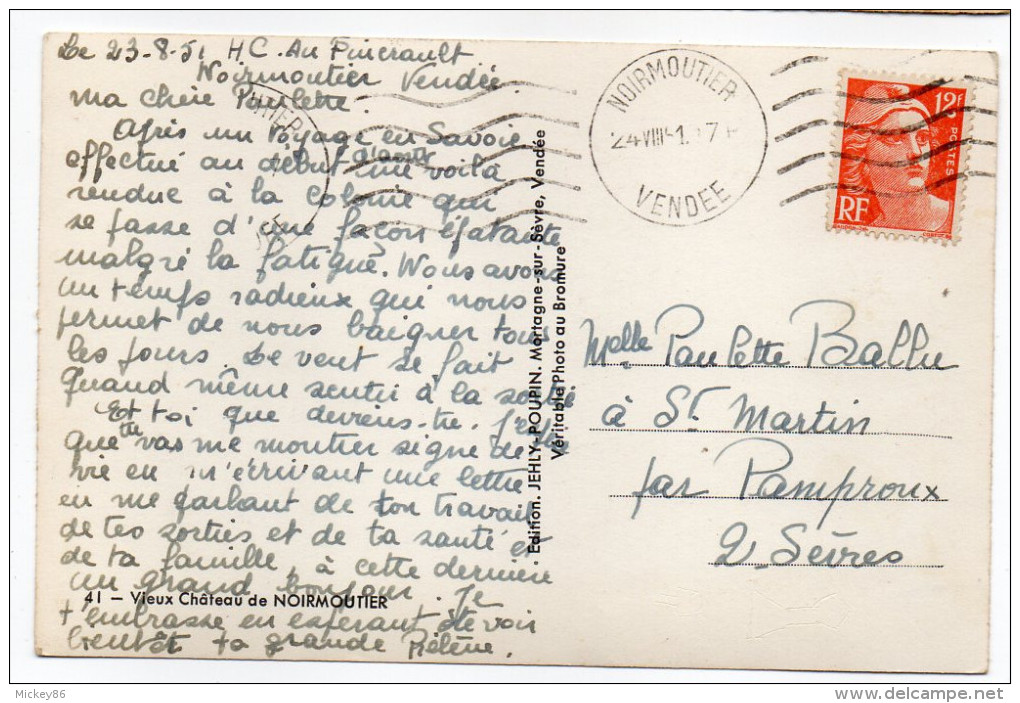 Le 23-8-51 H.C. Au
Noirmoutier Vendée
Ma chère Paulette.
Après un voyage en Savoie
effectué au début d'août me voilà
rendue à la colonie qui
se passe d'une façon épatante
malgré la fatigue. Nous avons
un temps radieux qui nous
permet de nous baigner tous
les jours. Le vent se fait
quand même sentir à la
Et toi que deviens-tu. J'espère
que tu vas me montrer signe de
vie en m'écrivant une lettre
en me parlant de ton travail
de tes sorties et de ta santé et
de ta famille, à cette dernière
un grand bonjour. Je
t'embrasse en espérant te voir
bientôt ta grande Hélène.
41 — Vieux Château de NOIRMOUTIER
Edition. JEHLY-POUPIN. Mortagne-sur-Sèvre, Vendée
Véritable Photo au Bromure
NOIRMOUTIER
24 VIII 51
VENDEE
12F
POSTES
RF
Melle Paulette Ballu
à St Martin
par Pamproux
2 Sèvres
Mickey86
www.delcampe.net